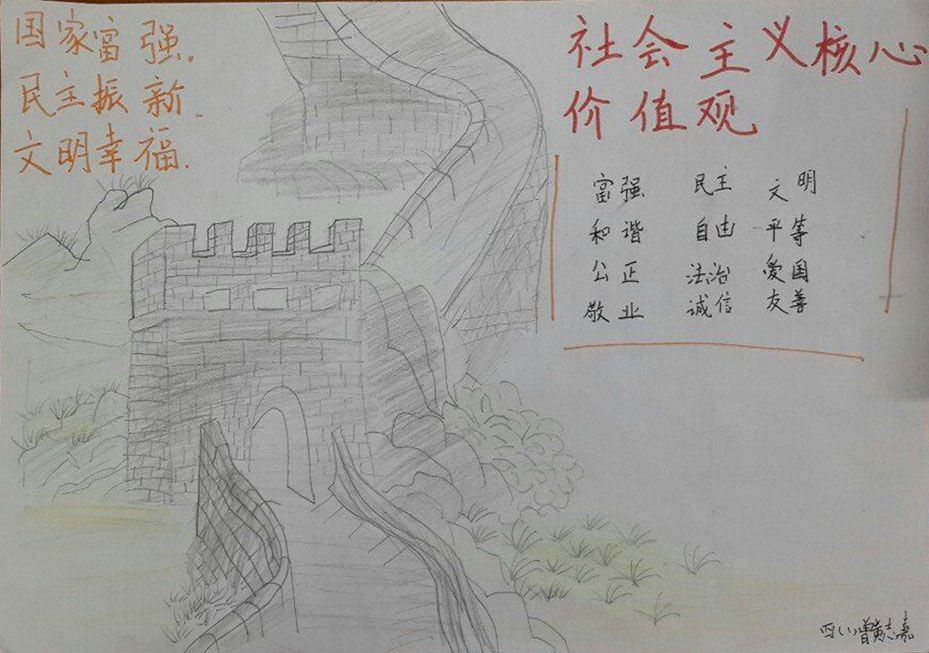 国家富强.
民主振新.
文明幸福.
社会主义核心
价值观
富强 民主 文明
和谐 自由 平等
公正 法治 爱国
敬业 诚信 友善
四(1)曾黄志嘉